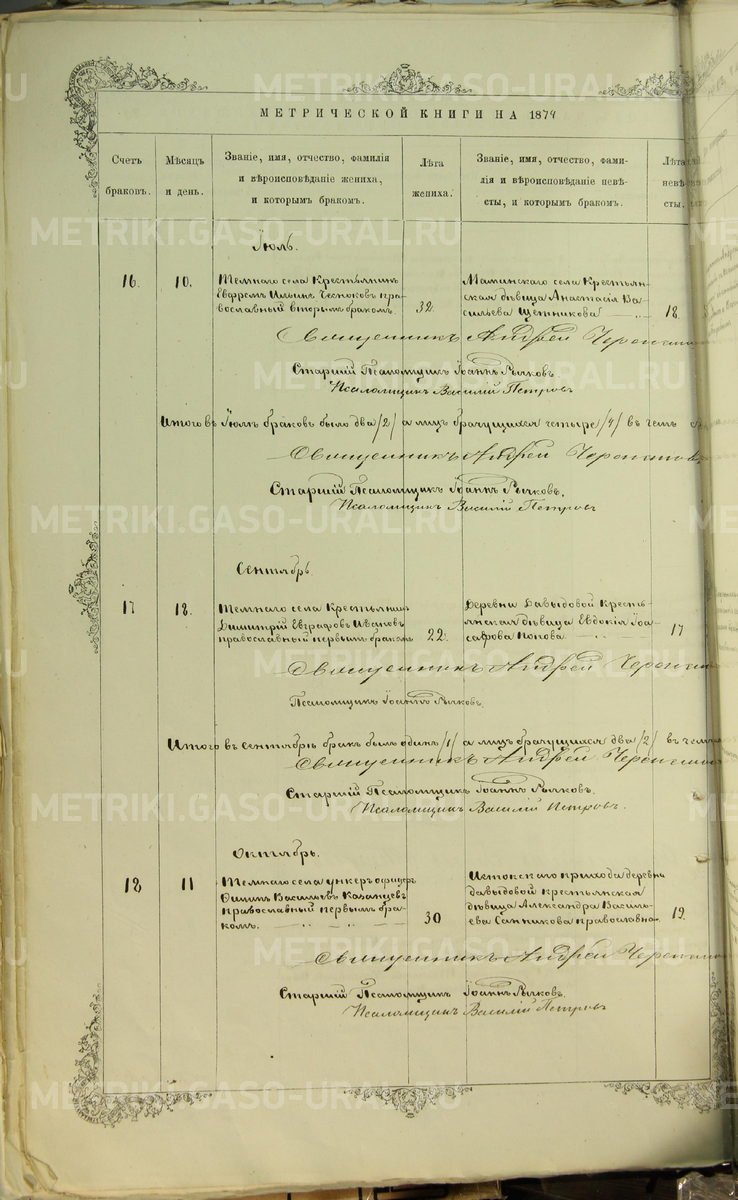 МЕТРИЧЕСКОЙ КНИГИ НА 1874
Счетъ браковъ.
Мѣсяцъ и день.
Званіе, имя, отчество, фамилія
и вѣроисповѣданіе жениха,
и которымъ бракомъ.
Лѣта жениха.
Званіе, имя, отчество, фами-
лія и вѣроисповѣданіе невѣ-
сты, и которымъ бракомъ.
Лѣта невѣ-
сты.
Іюль.
16.
10.
Темнаго села Крестьянинъ
Евфремъ Ильинъ Чесноковъ пра-
вославный вторымъ бракомъ.
32.
Маминскаго села Крестьян-
ская дѣвица Анастасія Ва-
сильева Щенникова
18
Священникъ Андрей
Старшій Псаломщикъ Іоаннъ Рычковъ
Псаломщикъ Василій Петровъ
Итого въ Іюлѣ браковъ было два /2/ а лицъ брачущихся четыре /4/ въ чемъ
Священникъ Андрей
Старшій Псаломщикъ Іоаннъ Рычковъ.
Псаломщикъ Василій Петровъ
Сентябрь.
17
18.
Темнаго села Крестьянинъ
Димитрій Евграфовъ Ивановъ
православный первымъ бракомъ
22.
Деревни Давыдовой Кресть-
янская дѣвица Евдокія Іоа-
сафова Попова
17
Священникъ Андрей
Псаломщикъ Іоаннъ Рычковъ.
Итого въ сентябрѣ бракъ былъ одинъ /1/ а лицъ брачущихся два /2/ въ чемъ
Священникъ Андрей
Старшій Псаломщикъ Іоаннъ Рычковъ.
Псаломщикъ Василій Петровъ.
Октябрь.
18
11
Темнаго села ункеръ офицеръ
Филипъ Васильевъ Казанцевъ
православный первымъ бра-
комъ.
30
Истокскаго прихода деревни
давыдовой крестьянская
дѣвица Александра Василь-
ева Санникова православна
19.
Священникъ Андрей
Старшій Псаломщикъ Іоаннъ Рычковъ.
Псаломщикъ Василій Петровъ
METRIKI.GASO-URAL.RU